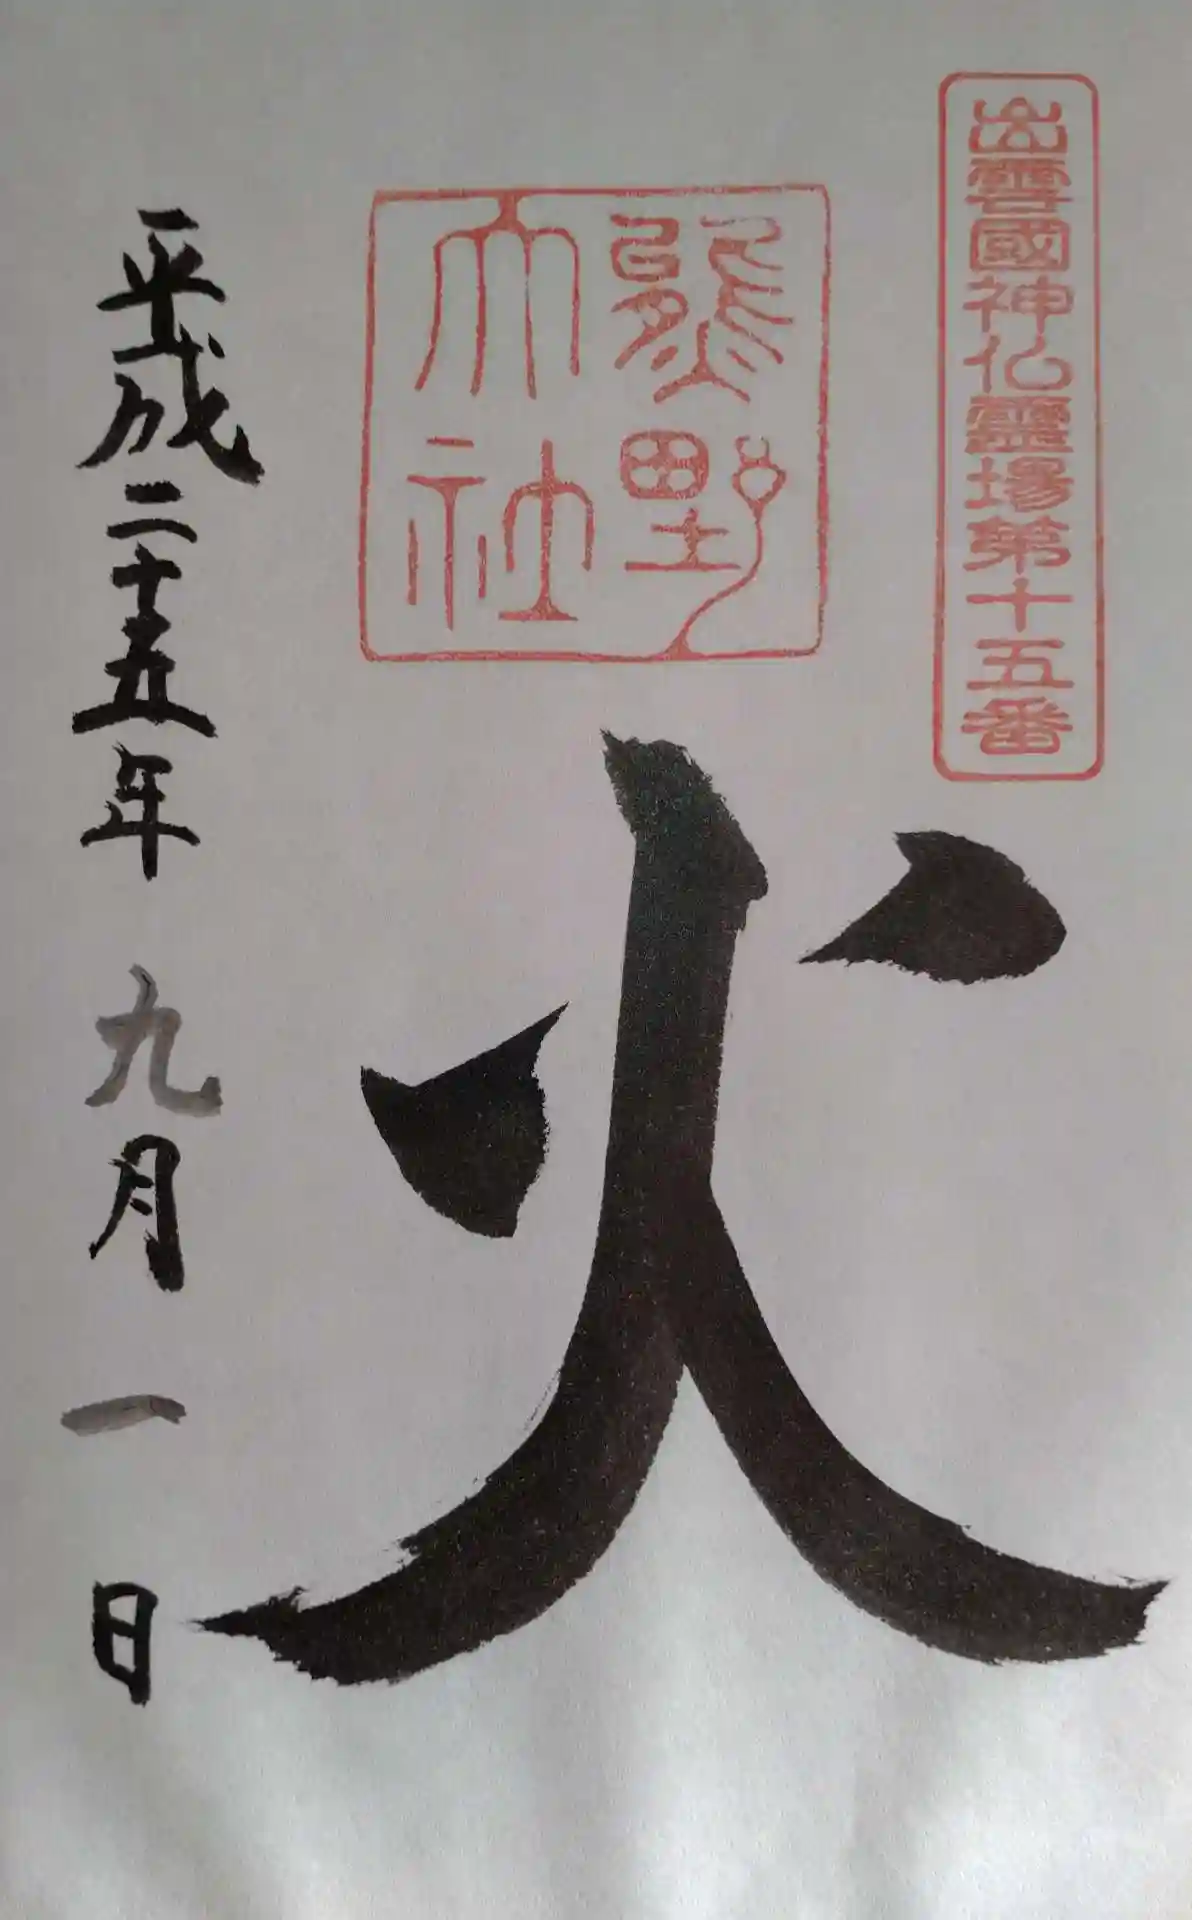 出雲國神仏霊場第十五番
熊野
大社
火
平成二十五年九月一日